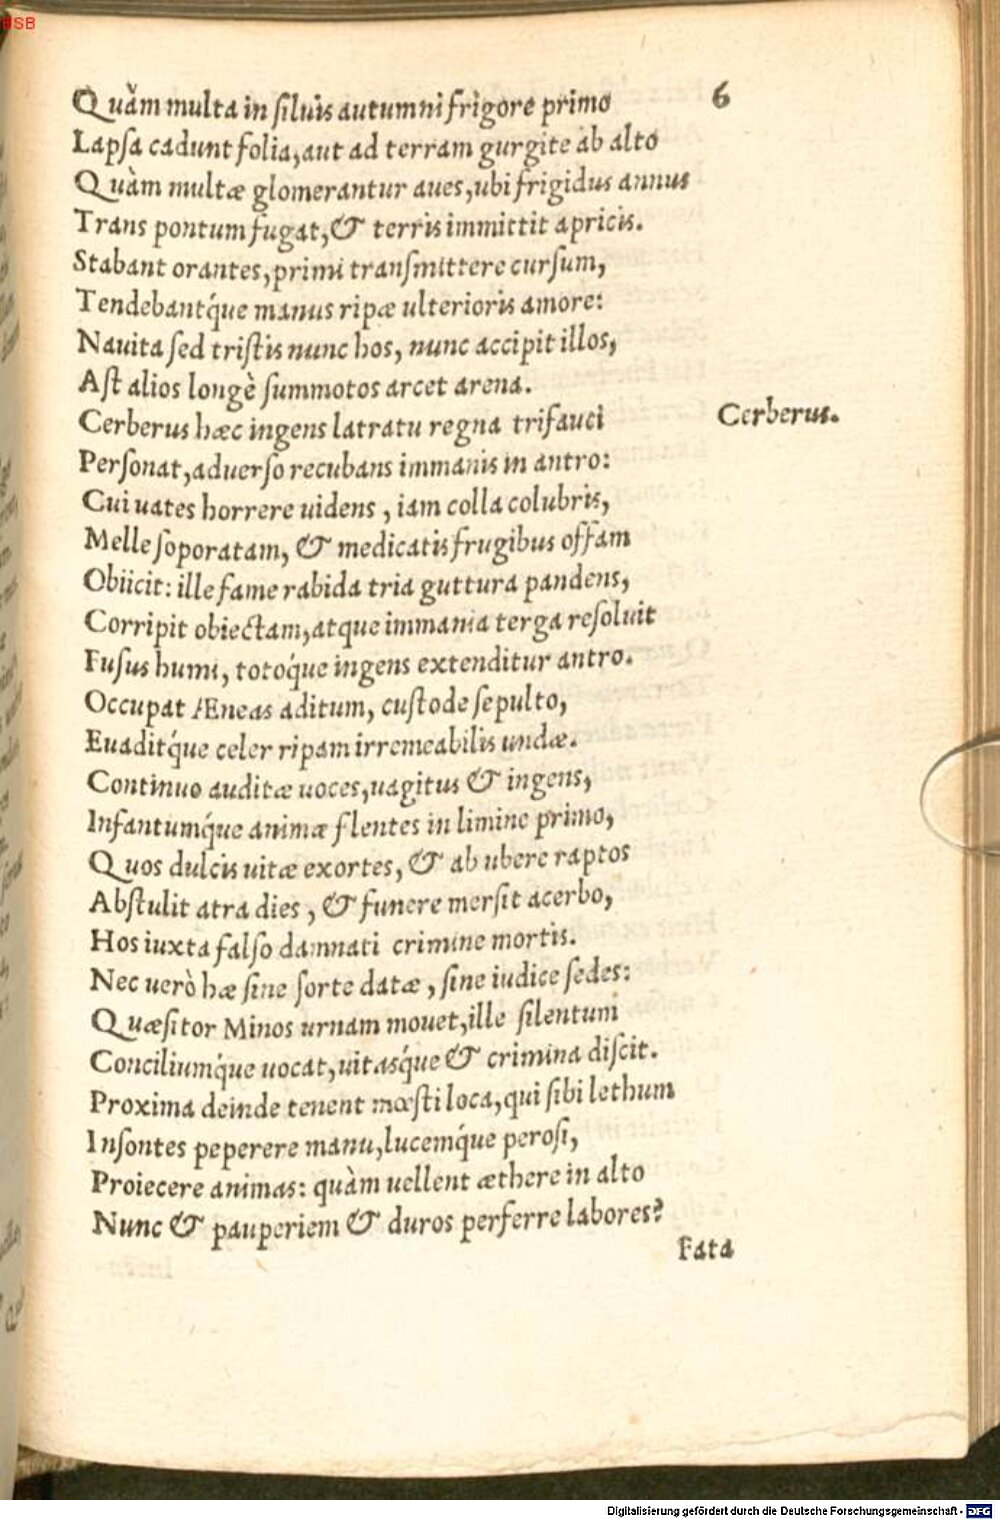 BSB
Quàm multa in siluis autumni frigore primo 6
Lapsa cadunt folia, aut ad terram gurgite ab alto
Quàm multæ glomerantur aues, ubi frigidus annus
Trans pontum fugat, & terris immittit apricis.
Stabant orantes, primi transmittere cursum,
Tendebantq́ue manus ripæ ulterioris amore:
Nauita sed tristis nunc hos, nunc accipit illos,
Ast alios longè summotos arcet arena.
Cerberus hæc ingens latratu regna trifauci Cerberus.
Personat, aduerso recubans immanis in antro:
Cui uates horrere uidens, iam colla colubris,
Melle soporatam, & medicatis frugibus offam
Obiicit: ille fame rabida tria guttura pandens,
Corripit obiectam, atque immania terga resoluit
Fusus humi, totoq́ue ingens extenditur antro.
Occupat Æneas aditum, custode sepulto,
Euaditq́ue celer ripam irremeabilis undæ.
Continuo auditæ uoces, uagitus & ingens,
Infantumq́ue animæ flentes in limine primo,
Quos dulcis uitæ exortes, & ab ubere raptos
Abstulit atra dies, & funere mersit acerbo,
Hos iuxta falso damnati crimine mortis.
Nec uerò hæ sine sorte datæ, sine iudice sedes:
Quæsitor Minos urnam mouet, ille silentum
Conciliumq́ue uocat, uitasq́ue & crimina discit.
Proxima deinde tenent mœsti loca, qui sibi lethum
Insontes peperere manu, lucemq́ue perosi,
Proiecere animas: quàm uellent æthere in alto
Nunc & pauperiem & duros perferre labores?
Fata
Digitalisierung gefördert durch die Deutsche Forschungsgemeinschaft - DFG